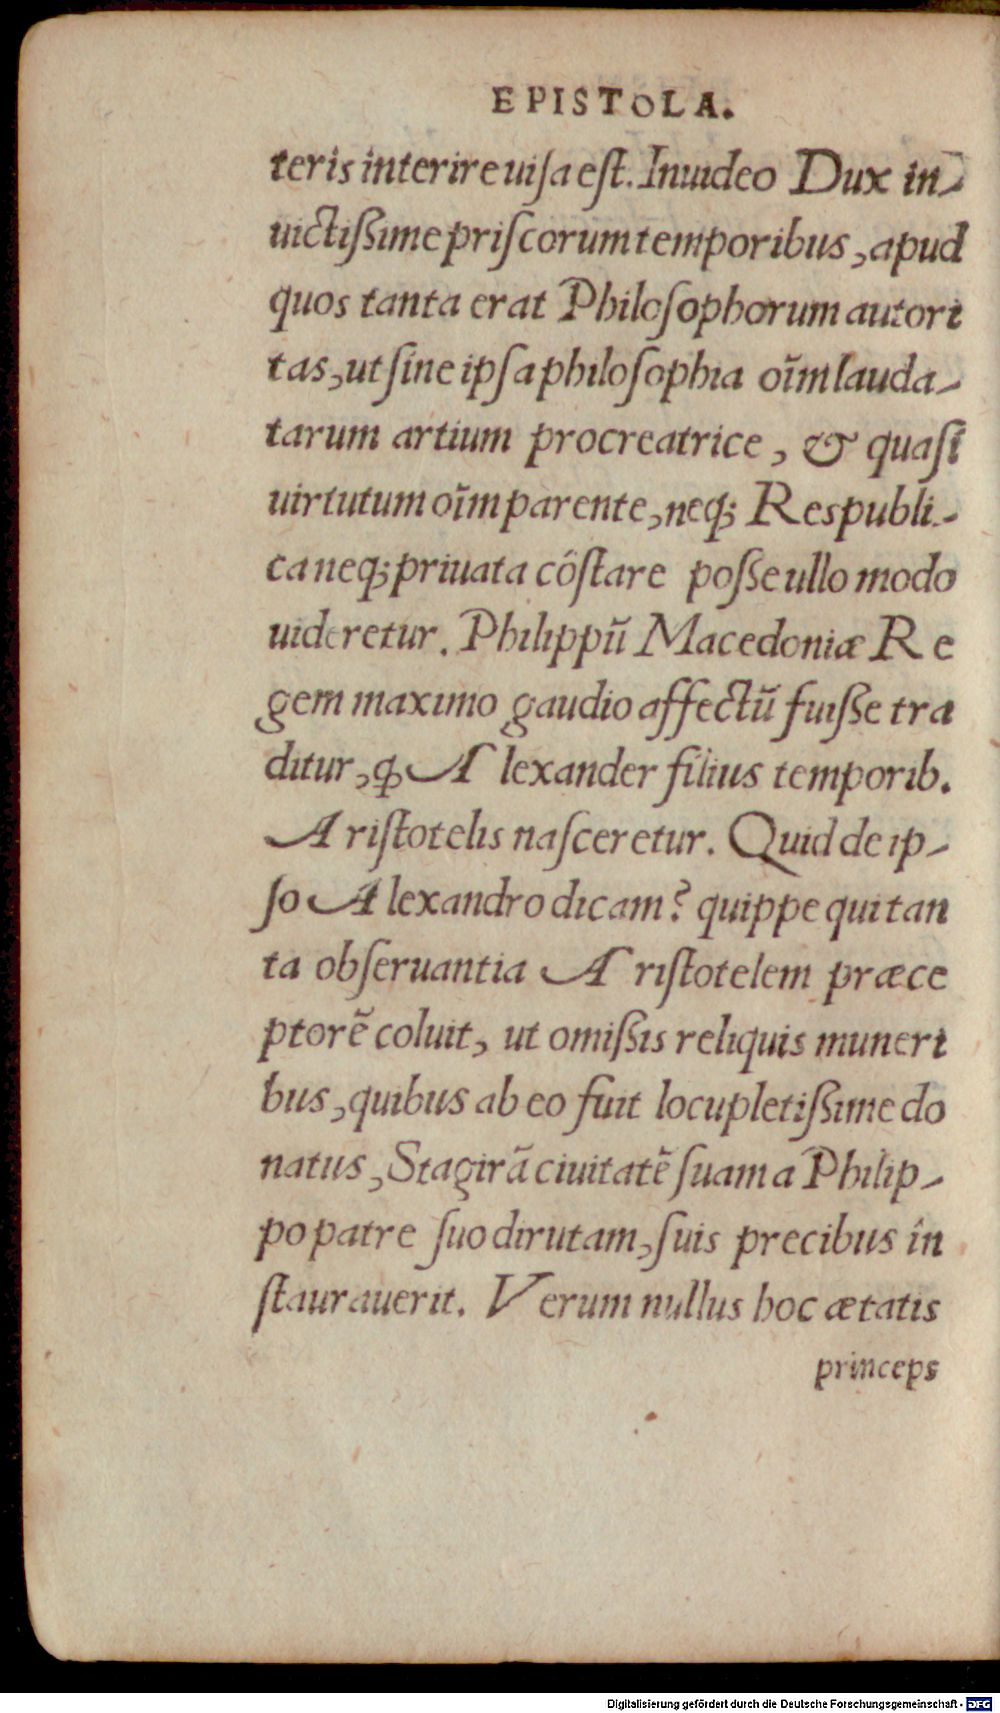 EPISTOLA.
teris interire uiſa eſt. Inuideo Dux in-
uictißime priſcorum temporibus, apud
quos tanta erat Philoſophorum autori
tas, ut ſine ipſa philoſophia oīm lauda-
tarum artium procreatrice, & quaſi
uirtutum oīm parente, neq; Respubli-
ca neq; priuata cōſtare poſſe ullo modo
uideretur. Philippū Macedoniæ Re
gem maximo gaudio affectū fuiſſe tra
ditur, ꝙ Alexander filius temporib.
Ariſtotelis naſceretur. Quid de ip-
ſo Alexandro dicam? quippe qui tan
ta obſeruantia Ariſtotelem præce
ptorē coluit, ut omißis reliquis muneri
bus, quibus ab eo fuit locupletißime do
natus, Stagirā ciuitatē ſuam a Philip-
po patre ſuo dirutam, ſuis precibus in
ſtaurauerit. Verum nullus hoc ætatis
princeps
Digitalisierung gefördert durch die Deutsche Forschungsgemeinschaft - DFG